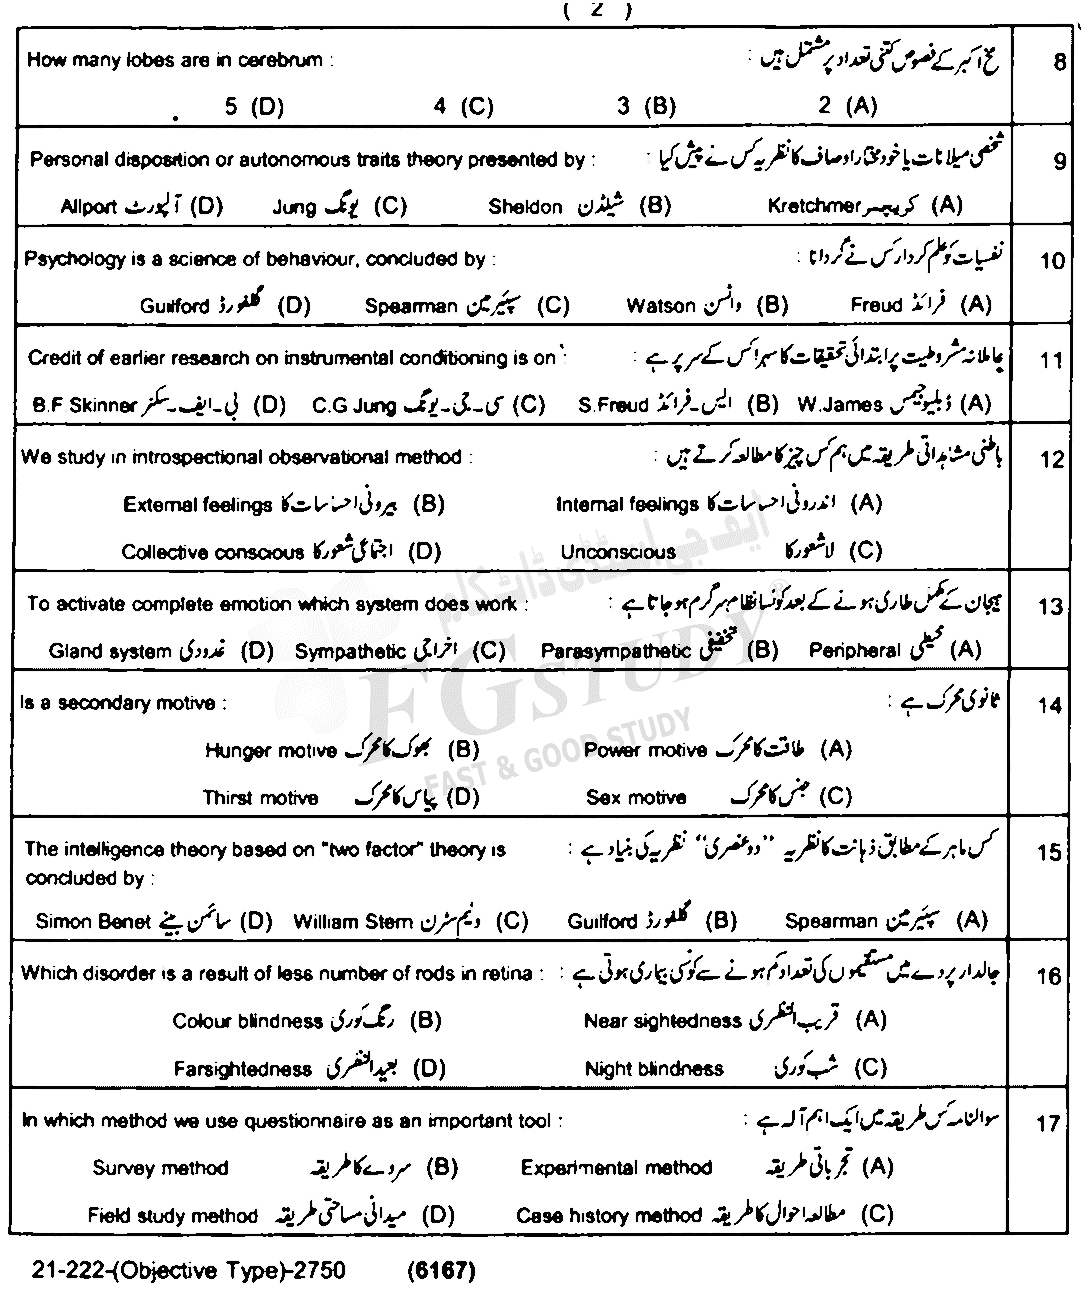 ( 2 )
How many lobes are in cerebrum : مخ اکبر کے فصوص کتنی تعداد پر مشتمل ہیں : 8
2 (A) 3 (B) 4 (C) 5 (D)
Personal disposition or autonomous traits theory presented by : شخصی میلانات یا خود مختار اوصاف کا نظریہ کس نے پیش کیا : 9
Kretchmer کریچمر (A) Sheldon شیلڈن (B) Jung یونگ (C) Allport آلپورٹ (D)
Psychology is a science of behaviour, concluded by : نفسیات کو علم کردار کس نے گردانا : 10
Freud فرائڈ (A) Watson واٹسن (B) Spearman سپئیرمین (C) Guilford گلفورڈ (D)
Credit of earlier research on instrumental conditioning is on : عاملانہ مشروطیت پر ابتدائی تحقیقات کا سہرا کس کے سر پر ہے : 11
W.James ڈبلیو جیمس (A) S.Freud ایس۔فرائڈ (B) C.G Jung سی۔جی۔یونگ (C) B.F Skinner بی۔ایف۔سکنر (D)
We study in introspectional observational method : باطنی مشاہداتی طریقہ میں ہم کس چیز کا مطالعہ کرتے ہیں : 12
Internal feelings اندرونی احساسات کا (A) External feelings بیرونی احساسات کا (B)
Unconscious لاشعور کا (C) Collective conscious اجتماعی شعور کا (D)
To activate complete emotion which system does work : ہیجان کے مکمل طاری ہونے کے بعد کونسا نظام سرگرم ہو جاتا ہے : 13
Peripheral محیطی (A) Parasympathetic تخفیفی (B) Sympathetic اخراجی (C) Gland system غدودی (D)
Is a secondary motive : ثانوی محرک ہے : 14
Power motive طاقت کا محرک (A) Hunger motive بھوک کا محرک (B)
Sex motive جنس کا محرک (C) Thirst motive پیاس کا محرک (D)
The intelligence theory based on "two factor" theory is کس ماہر کے مطابق ذہانت کا نظریہ "دو عنصری" نظریہ کی بنیاد ہے : 15
concluded by :
Spearman سپئیرمین (A) Guilford گلفورڈ (B) William Stern ولیم سٹرن (C) Simon Benet سائمن بینے (D)
Which disorder is a result of less number of rods in retina : جالدار پردے میں مستقیموں کی تعداد کم ہونے سے کونسی بیماری ہوتی ہے : 16
Near sightedness قریب النظری (A) Colour blindness رنگ کوری (B)
Night blindness شب کوری (C) Farsightedness بعید النظری (D)
In which method we use questionnaire as an important tool : سوالنامہ کس طریقہ میں ایک اہم آلہ ہے : 17
Experimental method تجرباتی طریقہ (A) Survey method سروے کا طریقہ (B)
Case history method مطالعہ احوال کا طریقہ (C) Field study method میدانی مساحتی طریقہ (D)
21-222-(Objective Type)-2750 (6167)
ایف جی اسٹڈی ڈاٹ کام
FG STUDY ®
FAST & GOOD STUDY